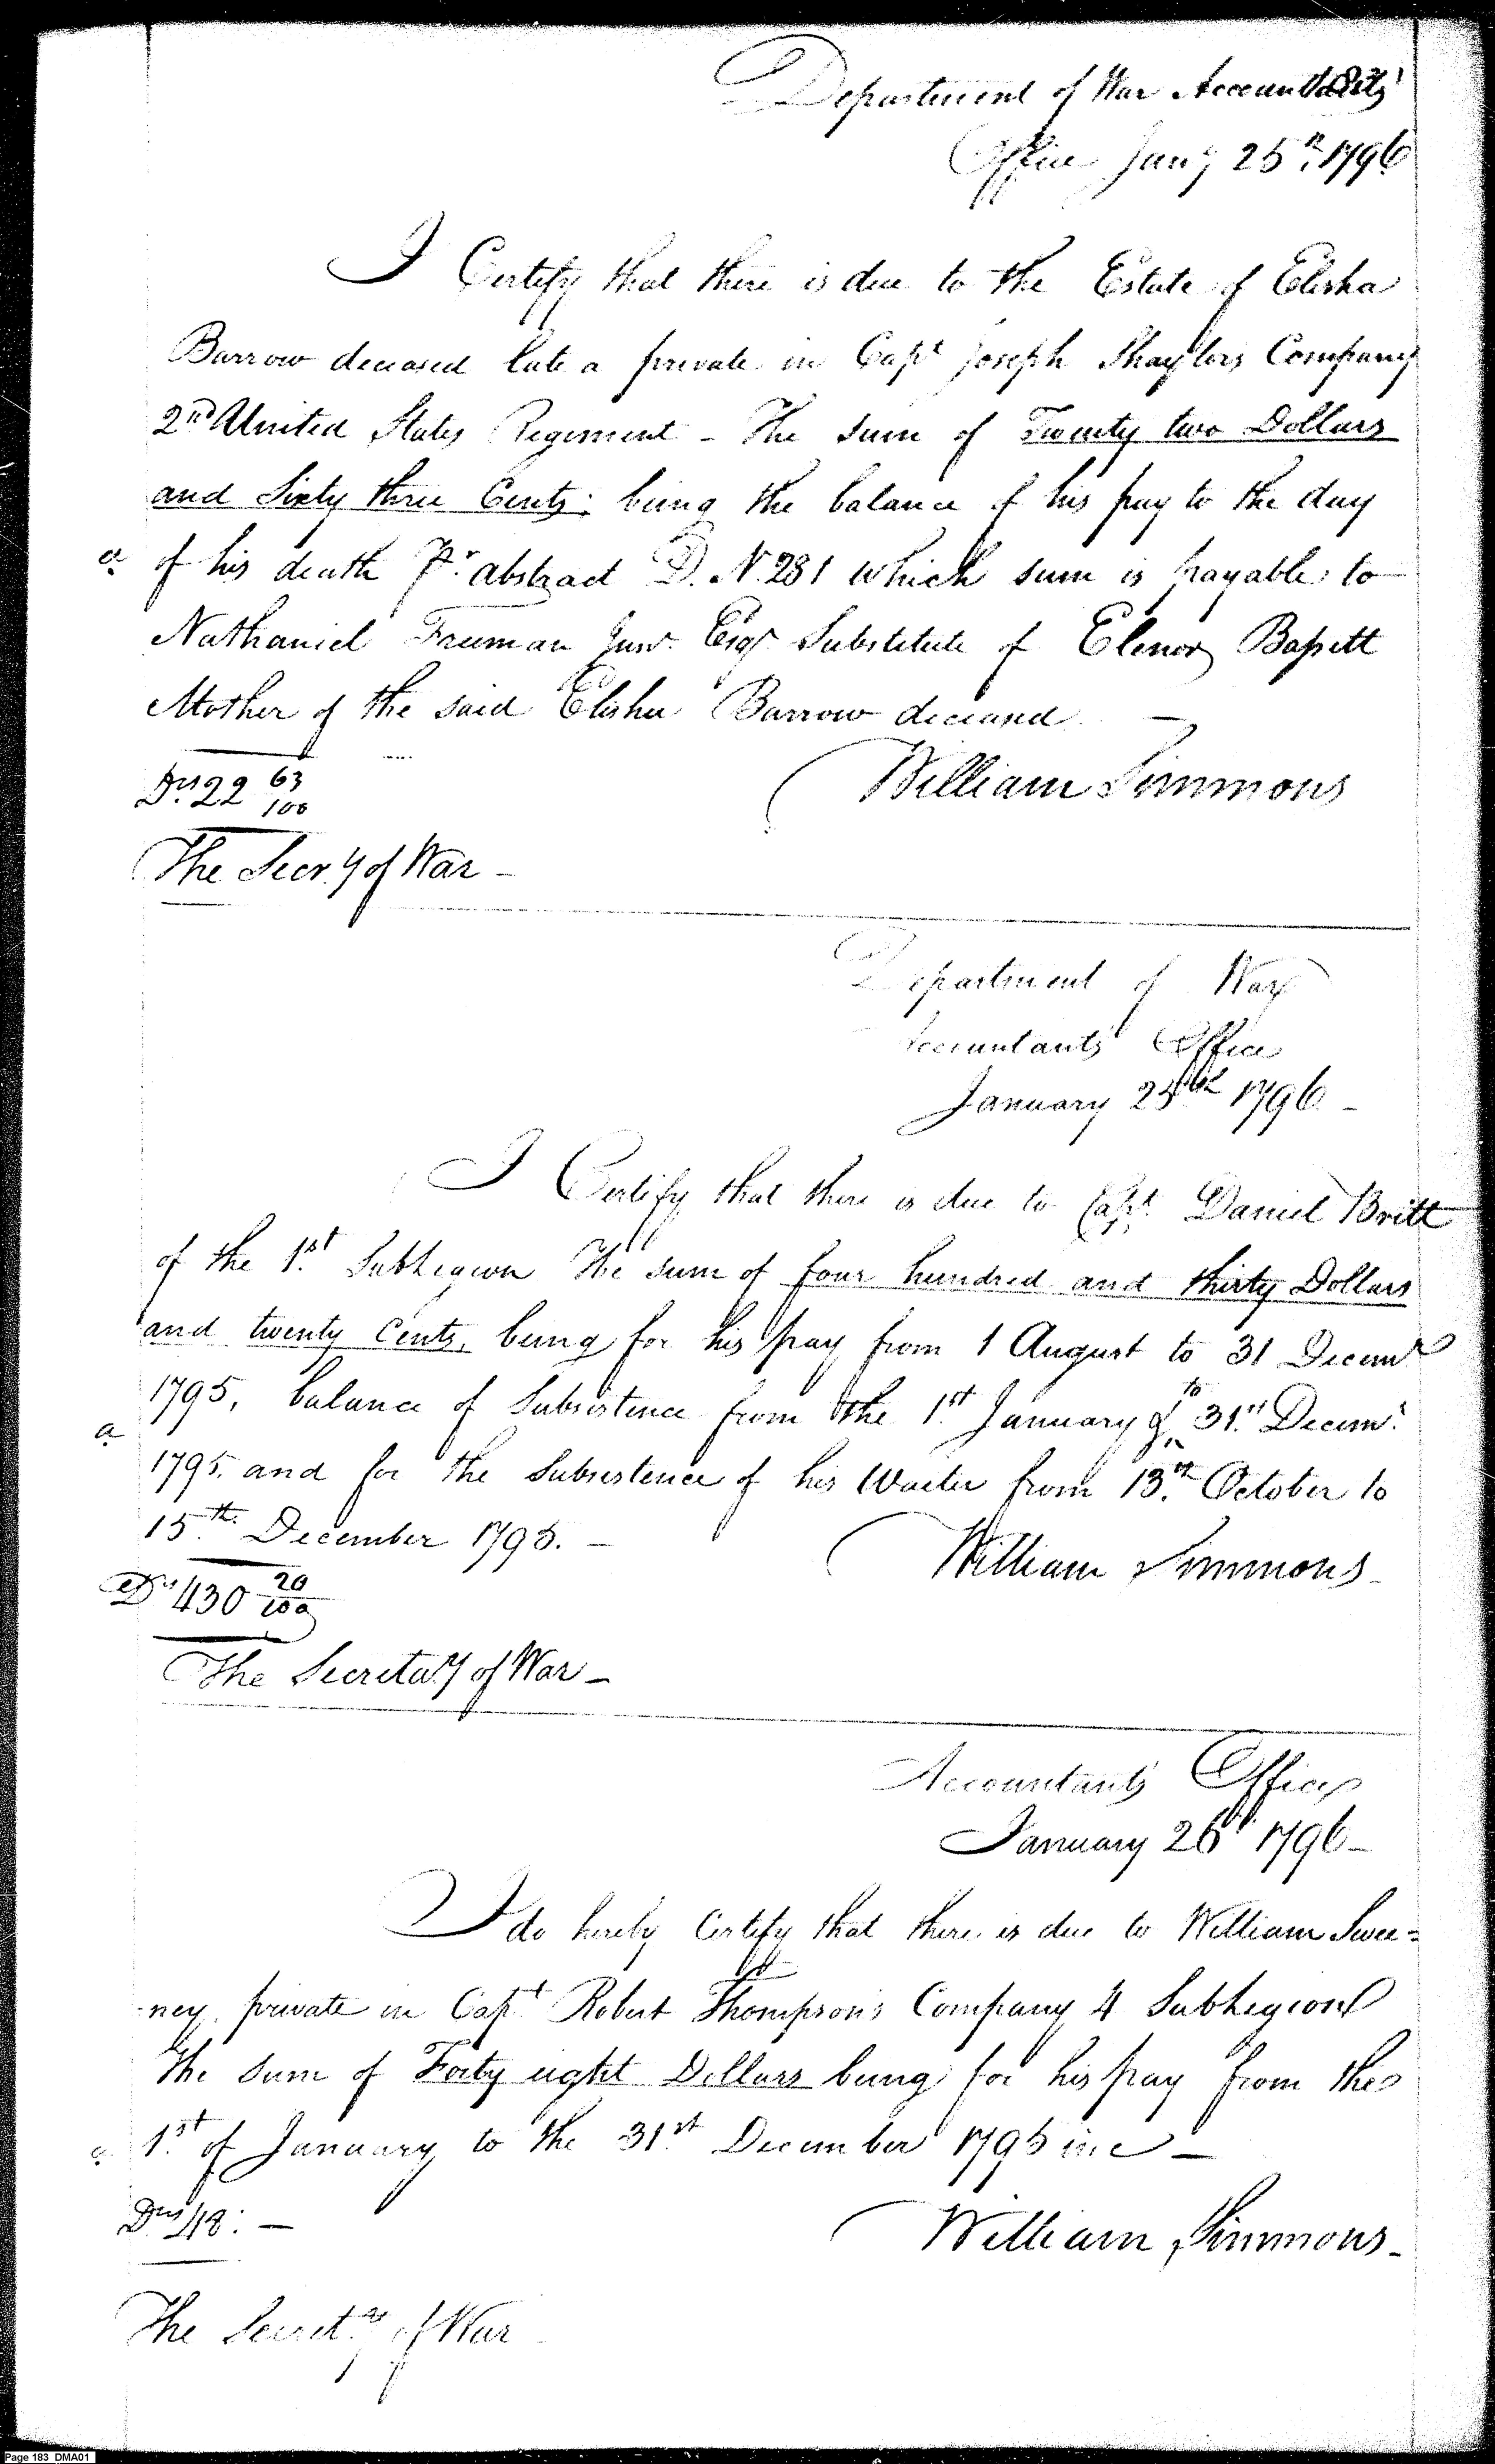 Department of War Accountants
Office Jany 25th 1796
I Certify that there is due to the Estate of Elisha
Barrow deceased late a private in Capt Joseph Shaylors Company
2nd United States Regiment - The sum of Twenty two Dollars
and Sixty three Cents; being the balance of his pay to the day
a. of his death Pr. abstract D. N. 281 which sum is payable to
Nathaniel Freeman Junr. Esqr. Substitute of Elenor Bassett
Mother of the said Elisha Barrow deceased. —
Drs 22 63/100
William Simmons
The Secr.y of War -
Department of War
Accountants Office
January 25th 1796 -
I Certify that there is due to Capt. Daniel Britt
of the 1st. Sub Legion The sum of four hundred and thirty Dollars
and twenty Cents, being for his pay from 1 August to 31 Decemr
1795, balance of Subsistence from the 1st. January to 31st Decemr.
a 1795. and for the Subsistence of his Waiter from 13.th October to
15.th December 1795. —
William Simmons -
Drs 430 20/100
The Secreta.y of War -
Accountants Office
January 26th 1796 -
I do hereby Certify that there is due to William Swee=
-ney, private in Capt Robert Thompson's Company 4 Sub Legion
The sum of Forty eight Dollars being for his pay from the
a. 1st. of January to the 31st. December 1795 inc —
Drs 48: —
William Simmons -
The Secret.ay of War
Page 183 DMA01